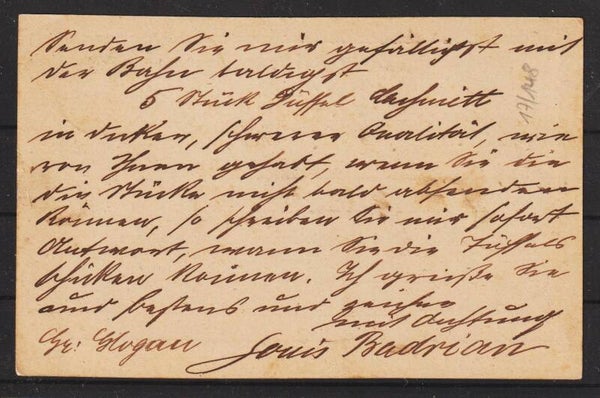 Senden Sie mir gefälligst mit
der Bahn baldigst
5 Stück Düffel
in dicker, schwerer Qualität, wie
von Ihnen gehabt, wenn Sie die
die Stücke nicht bald absenden
können, so schreiben Sie mir sofort
Antwort, wann Sie die Düffels
schicken können. Ich grüße Sie
bestens und zeichne
mit Achtung
Gr. Glogau Louis Badrian
17/148